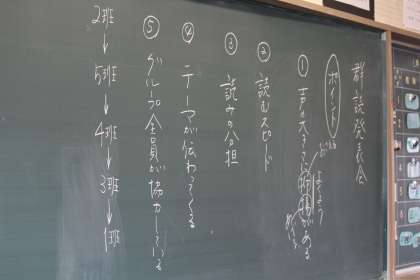 群読発表会
ポイント
① 声が大きくて抑揚がある
② 読むスピード
③ 読みの分担
④ テーマが伝わってくる
⑤ グループ全員が協力している
2班→5班→4班→3班→1班